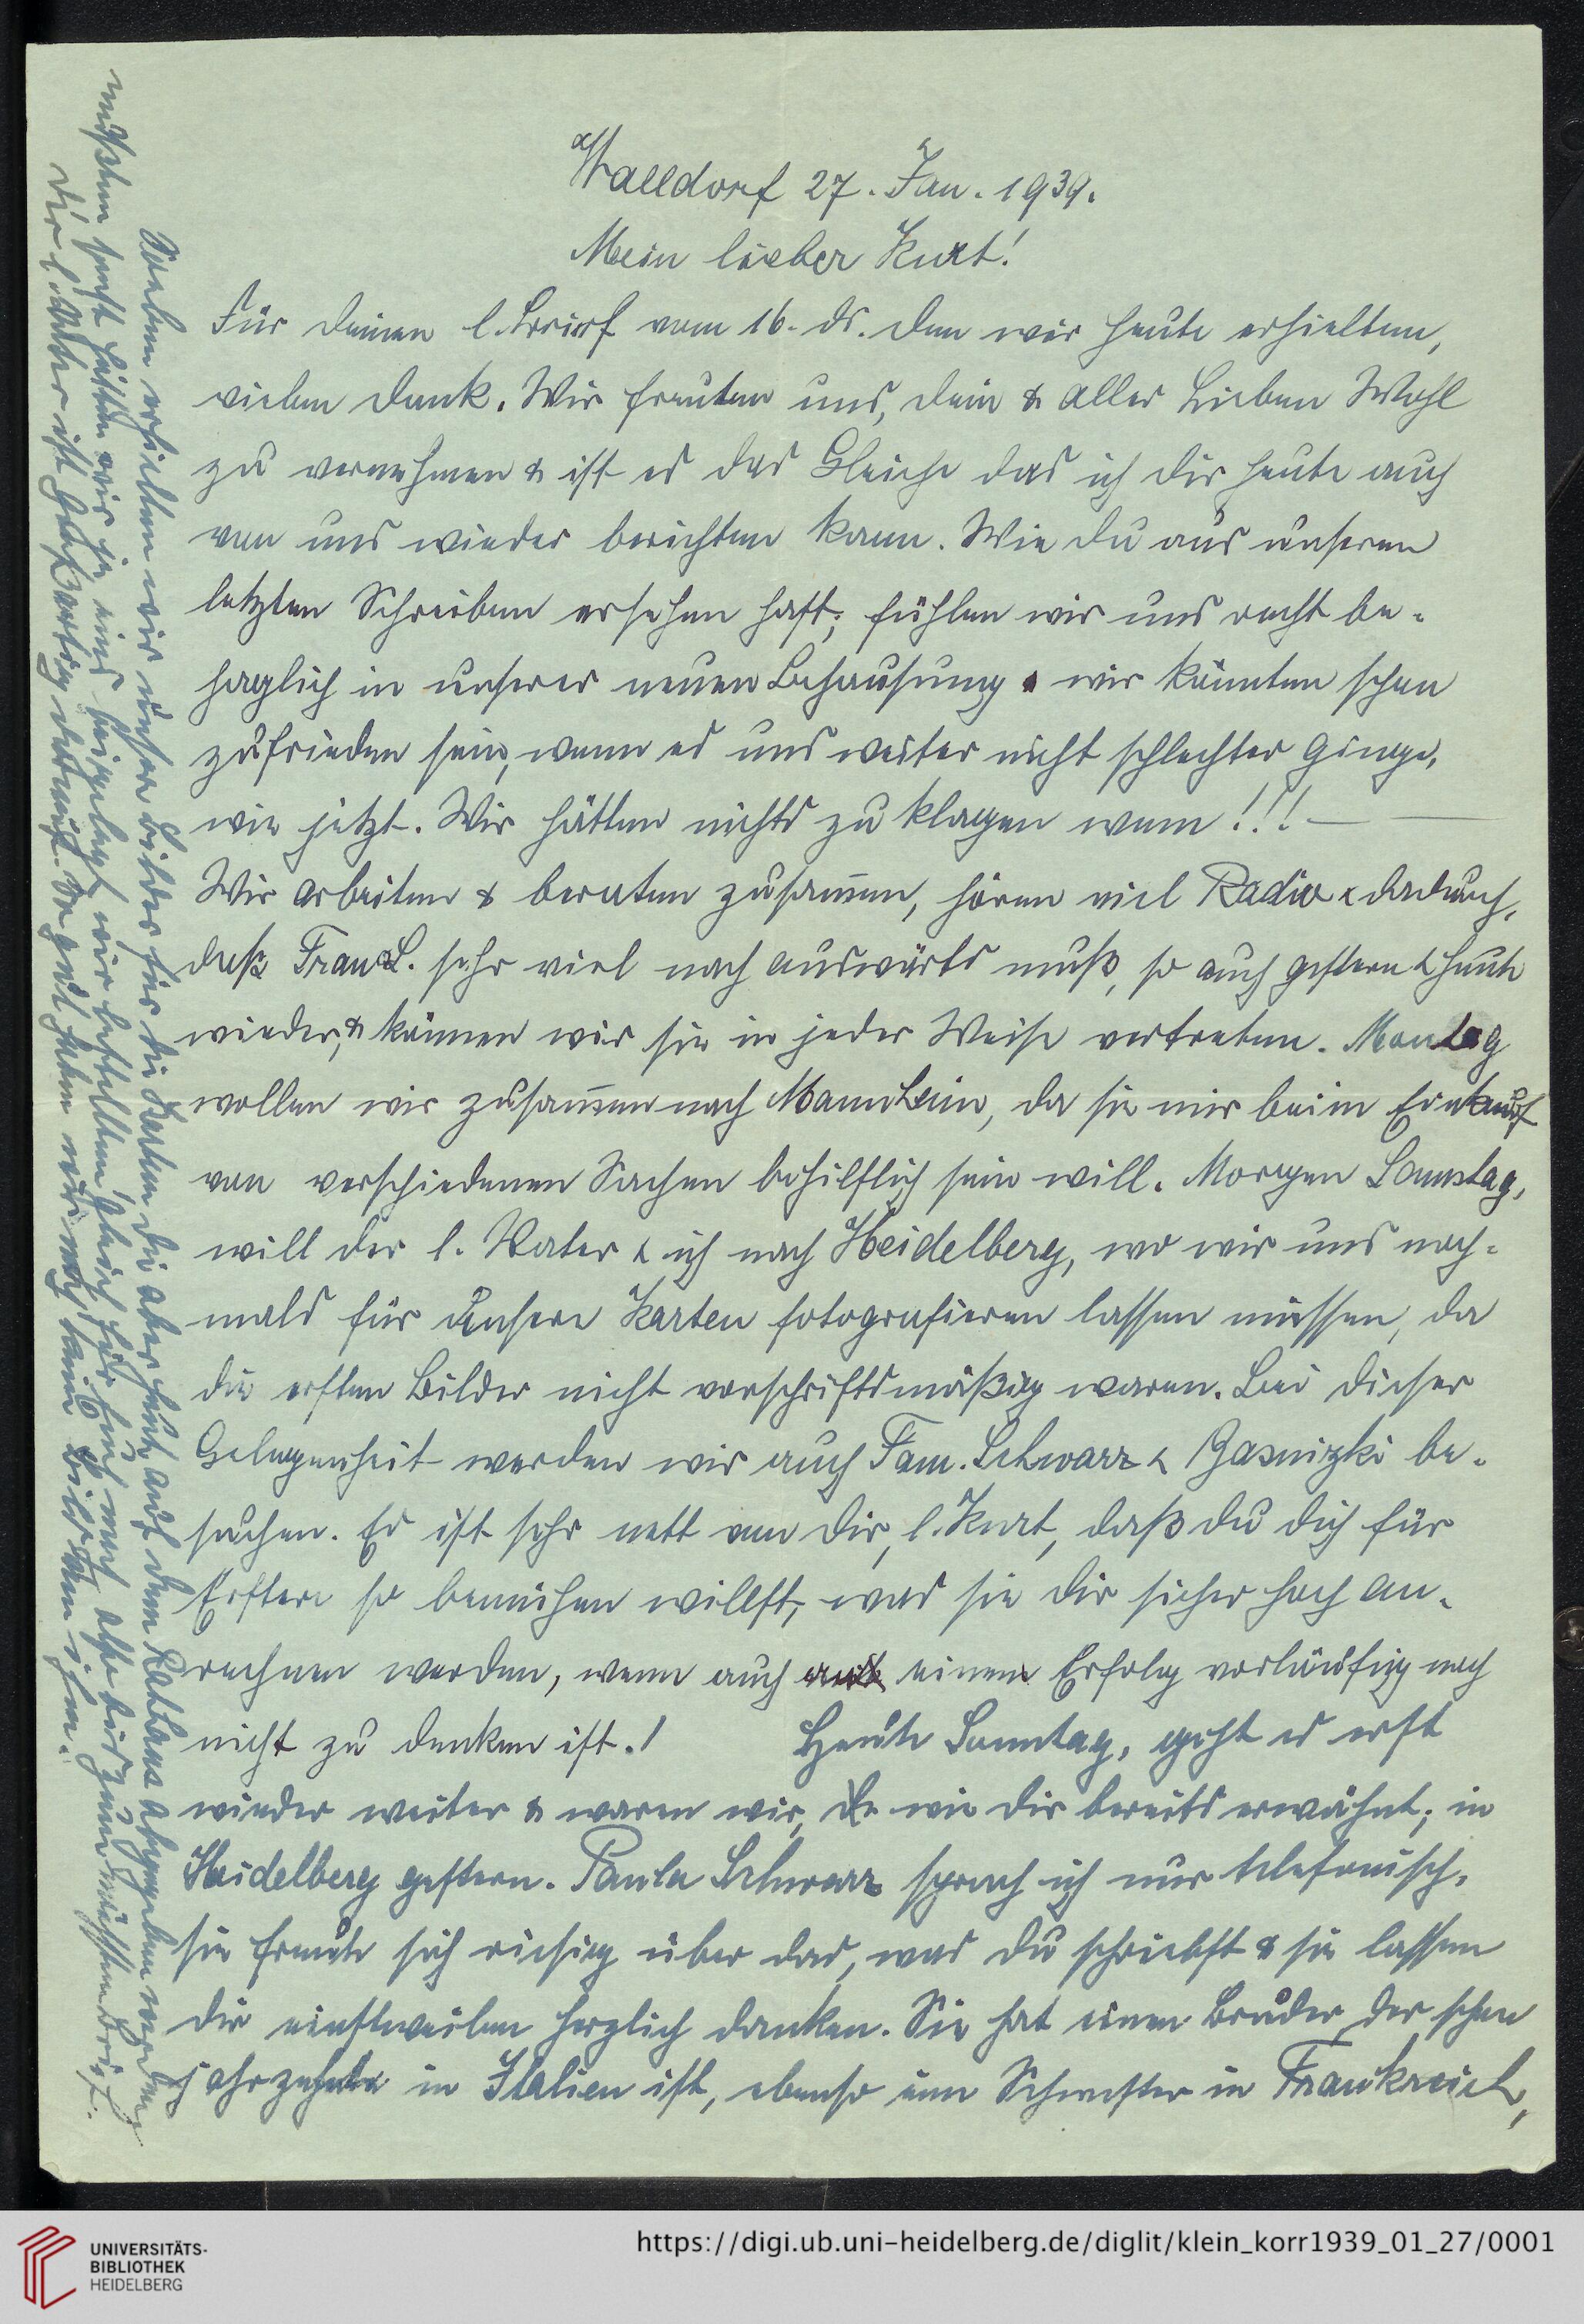 Walldorf 27. Jan. 1939.
Mein lieber Kurt!
Für deinen l. Brief vom 16. ds. den wir heute erhielten,
vielen Dank. Wir freuten uns, dein & aller Lieben Wohl
zu vernehmen & ist es das Gleiche das ich dir heute auch
von uns wieder berichten kann. Wie du aus unserem
letzten Schreiben ersehen hast, fühlen wir uns recht be-
haglich in unserer neuen Behausung & wir könnten schon
zufrieden sein, wenn es uns weiter nicht schlechter ginge,
wie jetzt. Wir hätten nichts zu klagen wenn!!! — —
Wir arbeiten & beraten zusam̄en, hören viel Radio & dadurch,
daß Frau L. sehr viel nach auswärts muß, so auch gestern & heute
wieder, & können wir sie in jeder Weise vertreten. Montag
wollen wir zusam̄en nach Mannheim, da sie mir beim Einkauf
von verschiedenen Sachen behilflich sein will. Morgen Samstag,
will der l. Vater & ich nach Heidelberg, wo wir uns noch-
mals für unsere Karten fotografieren lassen müssen, da
die ersten Bilder nicht vorschriftsmäßig waren. Bei dieser
Gelegenheit werden wir auch Fam. Schwarz & Basnizki be-
suchen. Es ist sehr nett von dir, l. Kurt, daß du dich für
Erstere so bemühen willst, was sie dir sicher hoch an-
rechnen werden, wenn auch einen Erfolg vorläufig noch
nicht zu denken ist.! Heute Sonntag, geht es erst
wieder weiter & waren wir, wie dir bereits erwähnt, in
Heidelberg gestern. Paula Schwarz sprach ich nur telefonisch,
sie freute sich riesig über das, was du schriebst & sie lassen
dir einstweilen herzlich danken. Sie hat einen Bruder der schon
jahrzehnte in Italien ist, ebenso eine Schwester in Frankreich,
Soeben erhielten wir unsere Bilder für die Karten die aber heute auf dem Rathaus abgegeben werden
mußten sonst hätten wir je eins beigelegt wir bestellten gleich für Euch nach also bis zum nächsten Brief.
Der l. Vater ist